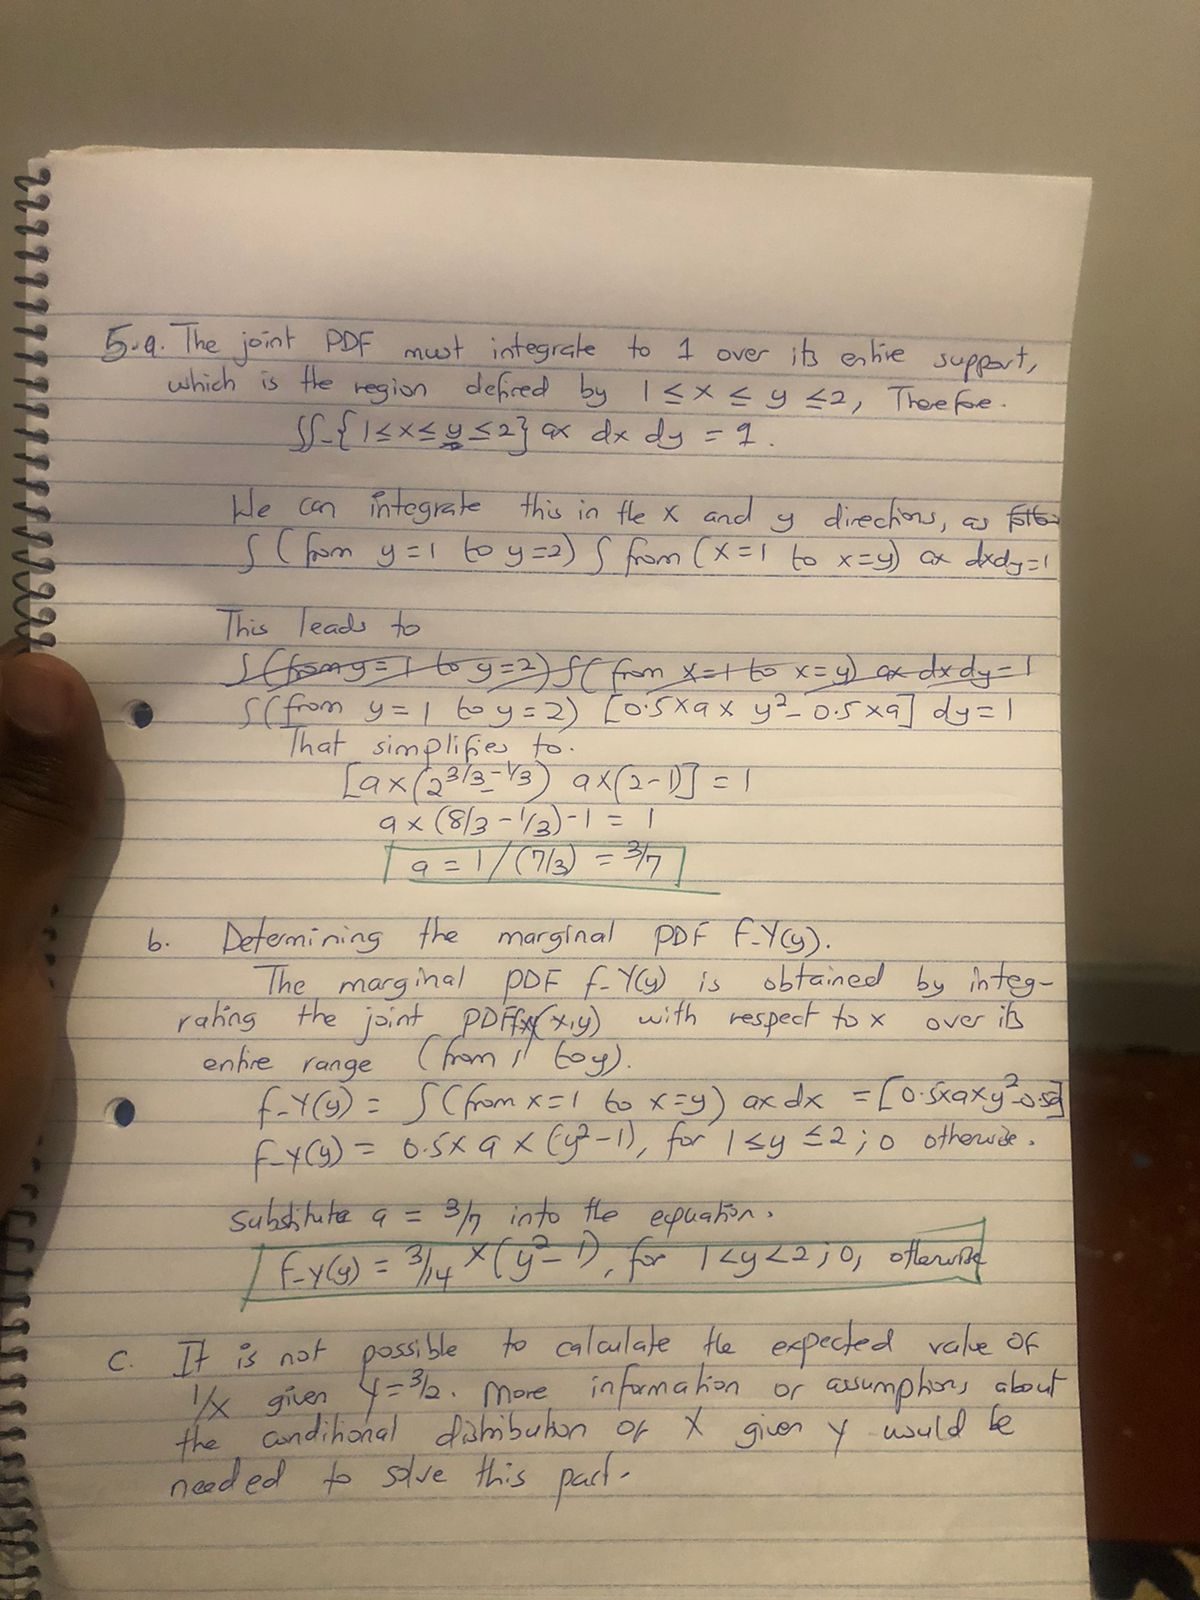 5.a. The joint PDF must integrate to 1 over its entire support,
which is the region defined by 1 ≤ x ≤ y ≤2, Therefore.
∫∫_{1≤x≤y≤2} ax dx dy = 1.
We can integrate this in the x and y directions, as
∫(from y=1 to y=2) ∫ from (x=1 to x=y) ax dxdy=1
This leads to
∫(from y=1 to y=2) ∫( from x=1 to x=y) ax dx dy=1
∫(from y=1 to y=2) [0.5xax y²-0.5xa] dy=1
That simplifies to.
[ax(2^3/3-1/3) ax(2-1)] = 1
ax(8/3-1/3)-1 = 1
a = 1/(7/3) = 3/7
b. Determining the marginal PDF f_Y(y).
The marginal PDF f_Y(y) is obtained by integ-
rating the joint PDF (x,y) with respect to x over its
entire range (from 1 to y).
f_Y(y) = ∫(from x=1 to x=y) ax dx = [0.5xaxy²-0.5a]
f_Y(y) = 0.5x a x (y²-1), for 1≤y≤2; 0 otherwise.
Substitute a = 3/7 into the equation.
f_Y(y) = 3/14 x (y²-1), for 1<y<2; 0, otherwise
c. It is not possible to calculate the expected value of
1/x given Y=3/2. More information or assumptions about
the conditional distribution of X given y would be
needed to solve this part.